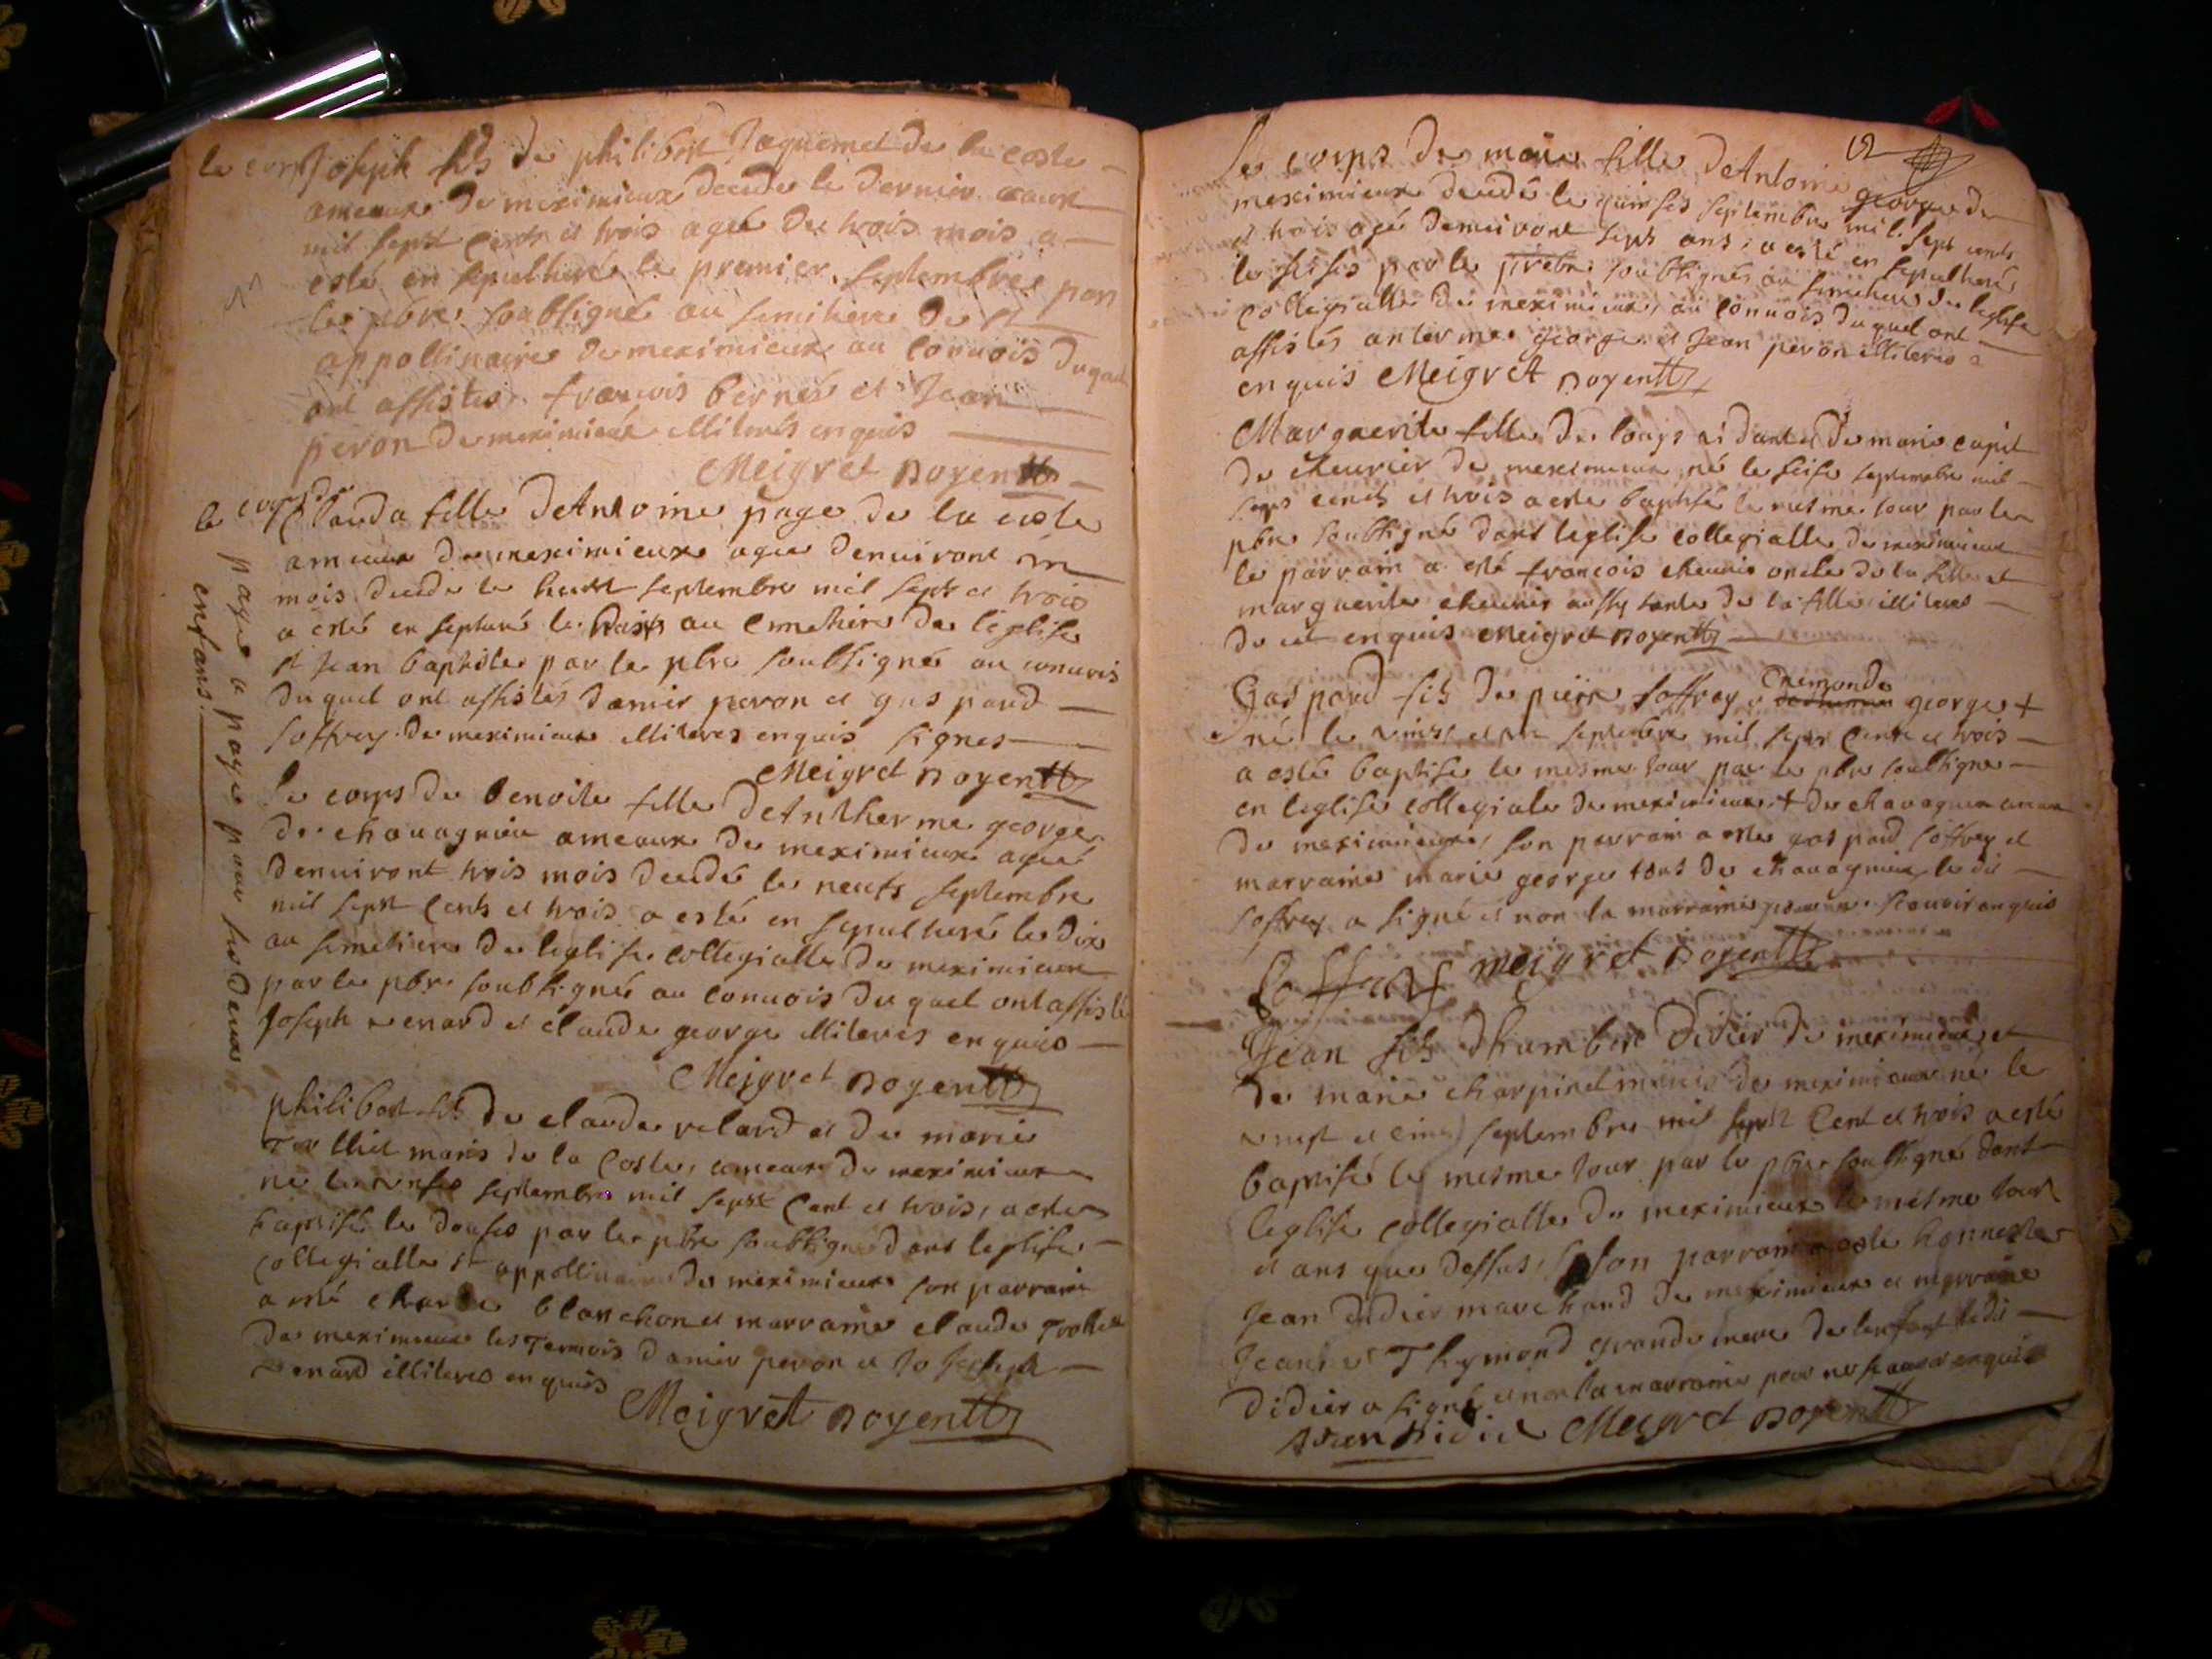 le corps Joseph fils de philibert Jaquemet de la coste
ameaux de meximieux decede le dernier aoust
mil sept cents et trois agé de trois mois a
esté en sepulturé le premier septembre par
le pbre soubsigné au simitiere de st
appollinaire de meximieux au convois duquel
ont assistes francois bernes et Jean
peron de meximieux illiterés enquis
Meigret Doyen
le corps de Clauda fille de Antoine page de la coste
ameaux de meximieux agee denviront un
mois decede le huit septembre mil sept et trois
a esté en septuré le au cimetiere de leglise
st Jean baptiste par le pbre soubsigné au convois
duquel ont assistés damie peron et gaspard
soffrey de meximieux illiteres enquis signes
Meigret Doyen
page a payé pour ses deux
enfans.
Le corps de benoite fille de Antherme george
de chavagnieu ameaux de meximieux agee
denviront trois mois decedé le neufs septembre
mil sept cents et trois a esté en sepulturé le dix
au simetiere de leglise collegialle de meximieux
par le pbre soubsigné au convois du quel ont assisté
Joseph renard et claude george illiteres enquis
Meigret Doyen
philibert fils de claude relard et de marie
maris de la Coste, ameaux de meximieux
né le onses septembre mil sept cent et trois, a este
baptisé le douses par le pbre soubsigné dans leglise
collegialle st appollinaire de meximieux son parrain
a esté blanchon et marraine claude
de meximieux les temois damie peron et Jo Joseph
renard illiteres enquis
Meigret Doyen
12
Le corps de marie fille de Antoine george de
meximieux decedé le quinses septembre mil sept cents
et trois agé denviront sept ans, a esté en sepulturé
le seises par le prebtre soubsigné au simitiere de leglise
collegialle de meximieux, au convois duquel ont
assistés anterme george et Jean peron illiteres
enquis Meigret Doyen
Marguerite fille de louys et de marie capit
de cheurier de meximieux né le seise septembre mil
sept cents et trois a este baptisé le mesme jour par le
pbre soubsigné dans leglise collegialle de meximieux
le parrain a esté francois cheurier oncle de la fille et
marguerite cheurier aussy tante de la fille illiteres
de ce enquis Meigret Doyen
Gaspard fils de pierre soffrey et Enemonde george +
né le vingt et septembre mil sept cents et trois
a esté baptisé le mesme jour par le pbre soubsigné
en leglise collegiale de meximieux + de chavagneu
de meximieux, son parrain a este gaspard soffrey et
marraine marie george tous de chavagnieu le dit
soffrey a signé et non la marraine scavoir enquis
Soffrey Meigret Doyen
Jean fils dhumbert didier de meximieux et
de marie charpinel mariés de meximieux né le
vingt et cinq septembre mil sept cent et trois a esté
baptisé le mesme jour par le pbre soubsigné dant
leglise collegialle de meximieux le mesme jour
et ans que dessus, son parrain a este honneste
Jean didier marchand de meximieux et marraine
Jeanne Thymond grande mere de lenfant ledit
didier a signé et non la marraine pour ne scavoir enquis
Jean didier Meigret Doyen